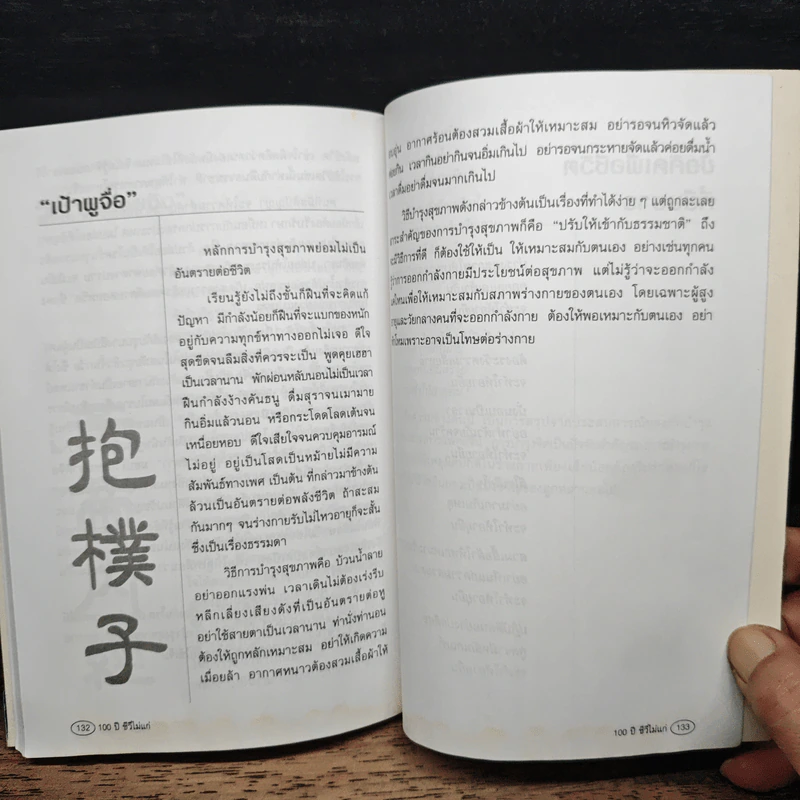 “เป้าผูจื่อ”
抱
樸
子
หลักการบำรุงสุขภาพย่อมไม่เป็น
อันตรายต่อชีวิต
เรียนรู้ยังไม่ถึงขั้นก็ฝืนที่จะคิดแก้
ปัญหา มีกำลังน้อยก็ฝืนที่จะแบกของหนัก
อยู่กับความทุกข์หาทางออกไม่เจอ ดีใจ
สุดขีดจนลืมสิ่งที่ควรจะเป็น พูดคุยเฮฮา
เป็นเวลานาน พักผ่อนหลับนอนไม่เป็นเวลา
ฝืนกำลังง้างคันธนู ดื่มสุราจนเมามาย
กินอิ่มแล้วนอน หรือกระโดดโลดเต้นจน
เหนื่อยหอบ ดีใจเสียใจจนควบคุมอารมณ์
ไม่อยู่ อยู่เป็นโสดเป็นหม้ายไม่มีความ
สัมพันธ์ทางเพศ เป็นต้น ที่กล่าวมาข้างต้น
ล้วนเป็นอันตรายต่อพลังชีวิต ถ้าสะสม
กันมากๆ จนร่างกายรับไม่ไหวอายุก็จะสั้น
ซึ่งเป็นเรื่องธรรมดา
วิธีการบำรุงสุขภาพคือ บ้วนน้ำลาย
อย่าออกแรงพ่น เวลาเดินไม่ต้องเร่งรีบ
หลีกเลี่ยงเสียงดังที่เป็นอันตรายต่อหู
อย่าใช้สายตาเป็นเวลานาน ท่านั่งท่านอน
ต้องให้ถูกหลักเหมาะสม อย่าให้เกิดความ
เมื่อยล้า อากาศหนาวต้องสวมเสื้อผ้าให้
132 100 ปี ชีวีไม่แก่
อบอุ่น อากาศร้อนต้องสวมเสื้อผ้าให้เหมาะสม อย่ารอจนหิวจัดแล้ว
ค่อยกิน เวลากินอย่ากินจนอิ่มเกินไป อย่ารอจนกระหายจัดแล้วค่อยดื่มน้ำ
เวลาดื่มอย่าดื่มจนมากเกินไป
วิธีบำรุงสุขภาพดังกล่าวข้างต้นเป็นเรื่องที่ทำได้ง่าย ๆ แต่ถูกละเลย
สาระสำคัญของการบำรุงสุขภาพก็คือ “ปรับให้เข้ากับธรรมชาติ” ถึง
จะมีวิธีการที่ดี ก็ต้องใช้ให้เป็น ให้เหมาะสมกับตนเอง อย่างเช่นทุกคน
รู้ว่าการออกกำลังกายมีประโยชน์ต่อสุขภาพ แต่ไม่รู้ว่าจะออกกำลัง
แค่ไหนเพื่อให้เหมาะสมกับสภาพร่างกายของตนเอง โดยเฉพาะผู้สูง
อายุและวัยกลางคนที่จะออกกำลังกาย ต้องให้พอเหมาะกับตนเอง อย่า
หักโหมเพราะอาจเป็นโทษต่อร่างกาย
100 ปี ชีวีไม่แก่ 133